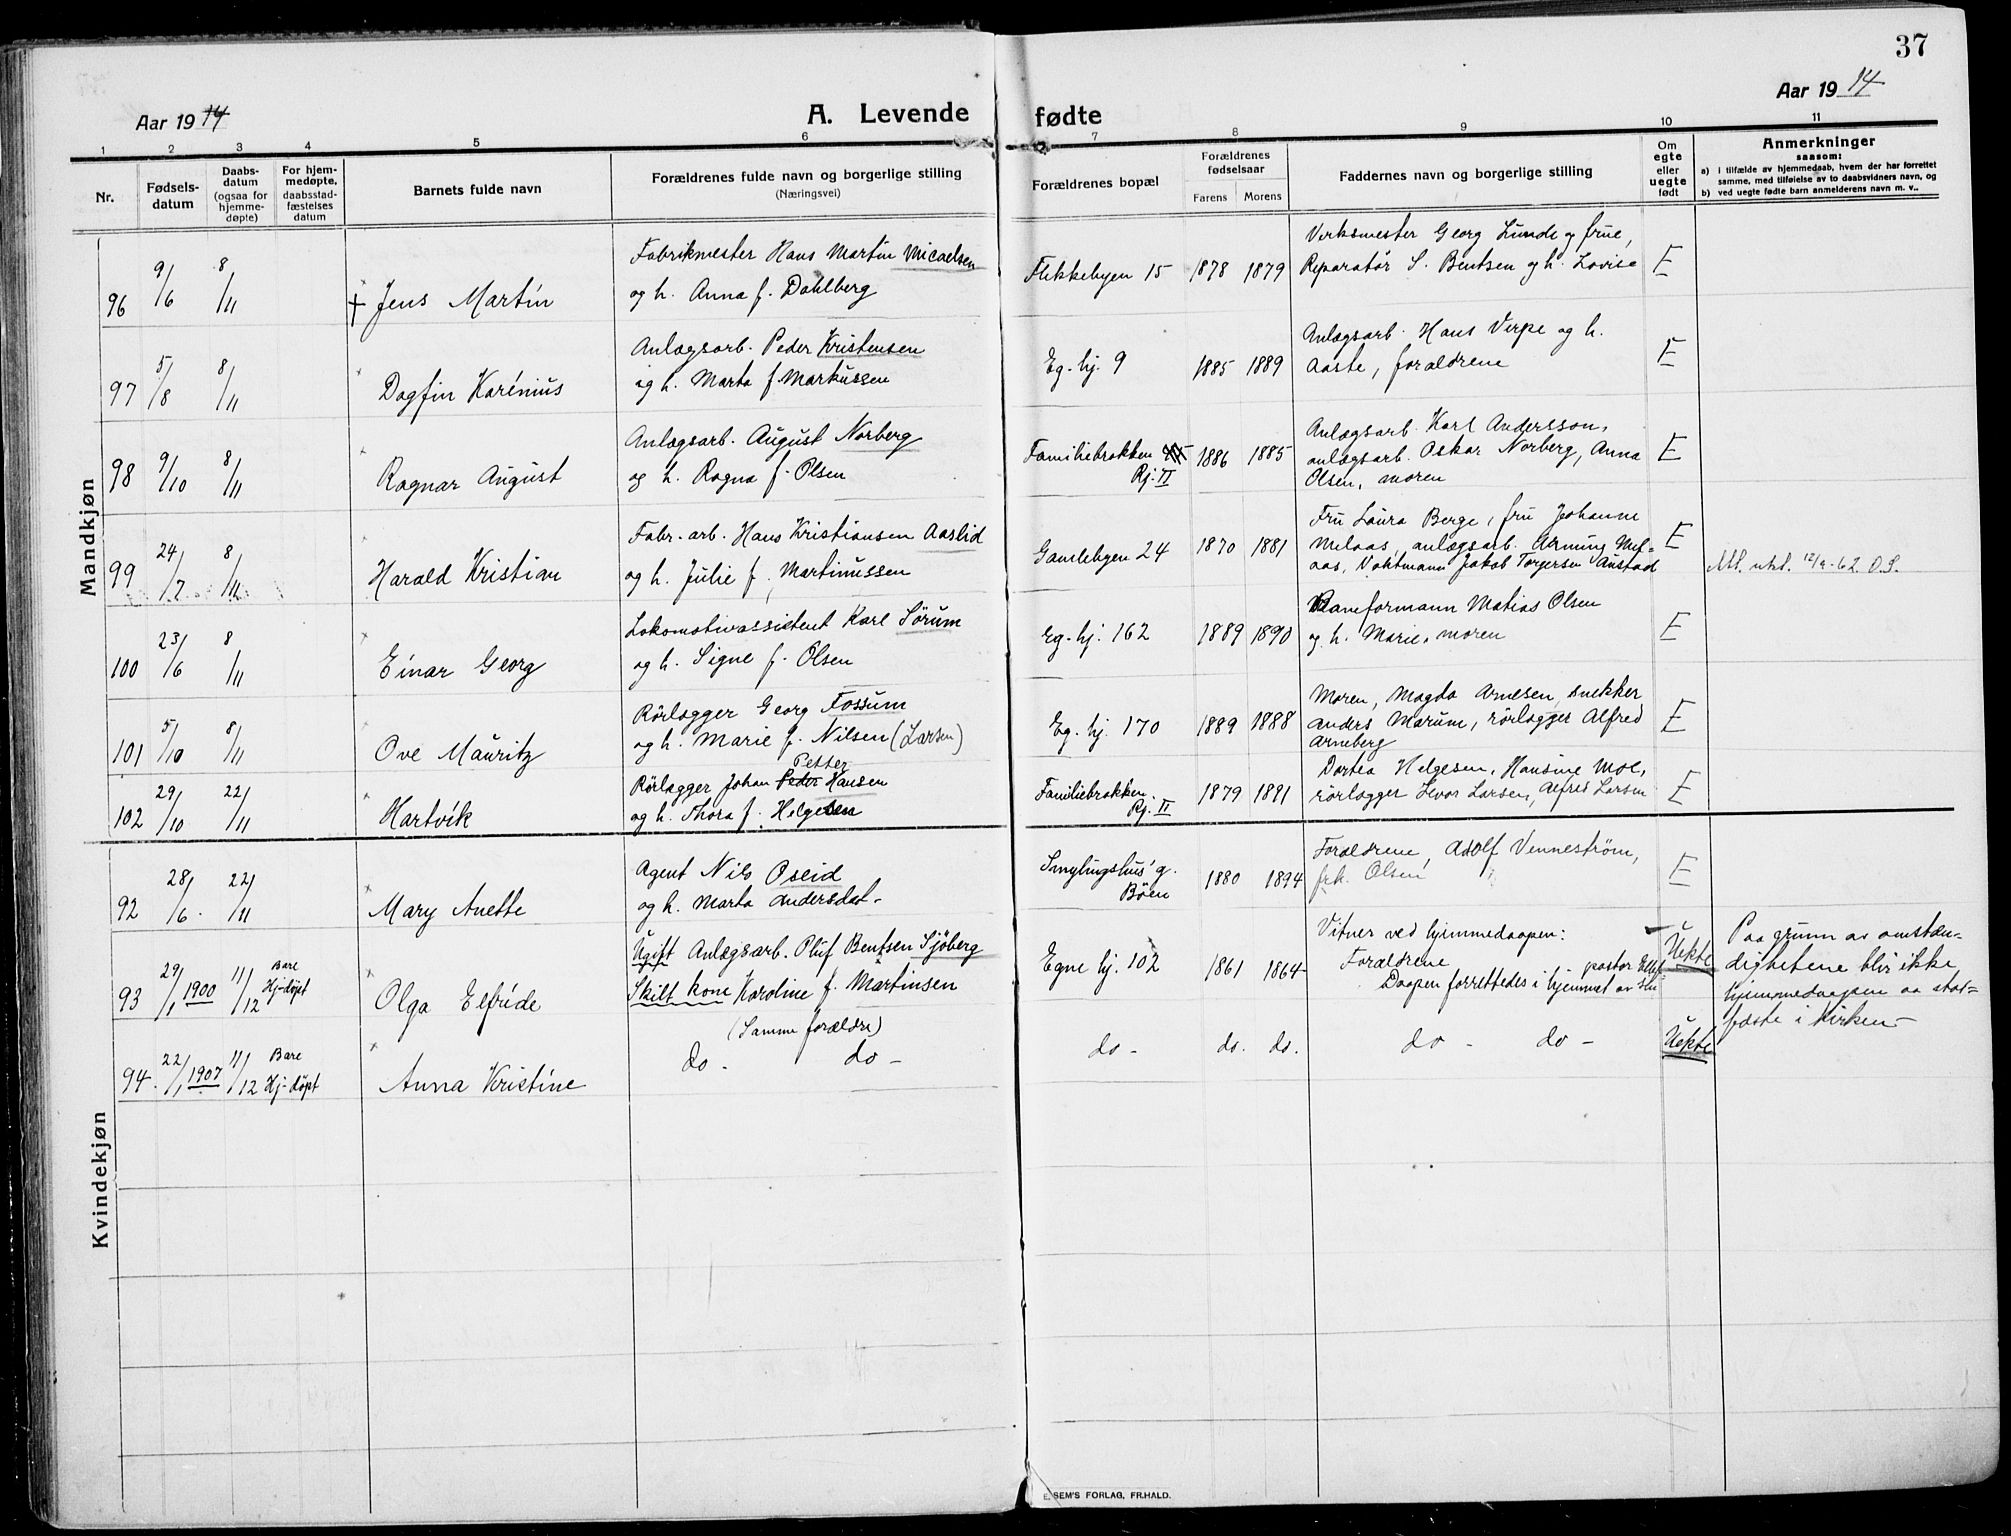 37
Aar 1914
A. Levende fødte
Aar 1914
1 2 3 4 5 6 7 8 9 10 11
Nr.
Fødsels-
datum
Daabs-
datum
(ogsaa for
hjemme-
døpte)
For hjem-
medøpte,
daabsstad-
fæstelses
datum
Barnets fulde navn
Forældrenes fulde navn og borgerlige stilling
(Næringsvei)
Forældrenes bopæl
Forældrenes
fødselsaar
Farens Morens
Faddernes navn og borgerlige stilling
Om
egte
eller
uegte
født
Anmerkninger
saasom:
a) i tilfælde av hjemmedaab, hvem der har forrettet
samme, med tilføielse av to daabsvidners navn, og
b) ved uegte fødte barn anmelderens navn m. v..
Mandkjøn
96 9/6 8/11 † Jens Martin
Fabrikmester Hans Martin Micaelsen
og h. Anna f. Dahlberg
Flekkebyen 15 1878 1879
Verksmester Georg Lunde og frue,
Reparatør S. Bentsen og h. Lovise
E
97 5/8 8/11 Dagfin Karénius
Anlægsarb. Peder Kristensen
og h. Marta f. Markussen
Eg. hj. 9 1885 1889
Anlægsarb. Hans Verpe og h.
Aaste, forældrene
E
98 9/10 8/11 Ragnar August
Anlægsarb. August Norberg
og h. Ragna f. Olsen
Familiebrakken
Rj. II
1886 1885
Anlægsarb. Karl Andersson,
anlægsarb. Oskar Norberg, Anna
Olsen, moren
E
99 24/7 8/11 Harald Kristian
Fabr. arb. Hans Kristiansen Aaslid
og h. Julie f. Martinussen
Gamlebyen 24 1870 1881
Fru Laura Berge, fru Johanne
Melaas, anlægsarb. Mel-
aas, Jakob Torgersen Austad
E
12/9-62 O.S.
100 23/6 8/11 Einar Georg
Lokomotivassistent Karl Sörum
og h. Signe f. Olsen
Eg. hj. 162 1889 1890
Baneformann Matias Olsen
og h. Marie, moren
E
101 5/10 8/11 Ove Mauritz
Rörlægger Georg Fossum
og h. Marie f. Nilsen (Larsen)
Eg. hj. 170 1889 1888
Moren, Magda Arnesen, snekker
Anders Marum, rörlægger Alfred
Arneberg
E
102 29/10 22/11 Hartvik
Petter
Rörlægger Johan Peder Hansen
og h. Thora f. Helgesen
Familiebrakken.
Rj. II
1879 1881
Dortea Helgesen, Hansine Moe,
rörlægger Levor Larsen, Alfred Larsen
E
Kvindekjøn
92 28/6. 22/11 Mary Anette
Agent Nils Oseid
og h. Marta Andersdat-
Smylingshus' g.
Böen
1880 1894
Forældrene, Adolf Venneström,
frk. Olsen
E
93 29/1 1900 11/12 Bare
Hj-döpt
Olga Elfride
Ugift Anlægsarb. Oluf Bentsen Sjöberg
Skilt kone Karoline f. Martinsen
Egne hj. 102 1861 1864
Vitner ved hjemmedaapen:
Forældrene
Daapen forrettedes i hjemmet av pastor
Uekte
Paa grunn av omstæn-
dighetene blir ikke
hjemmedaapen aa stad=
fæste i kirken-
94. 22/1 1907 11/12 Bare
Hj-döpt
Anna Kristine
(Samme forældre)
do. do-
do- do. do. do- do-
Uekte
E. SEM'S FORLAG, FR.HALD.